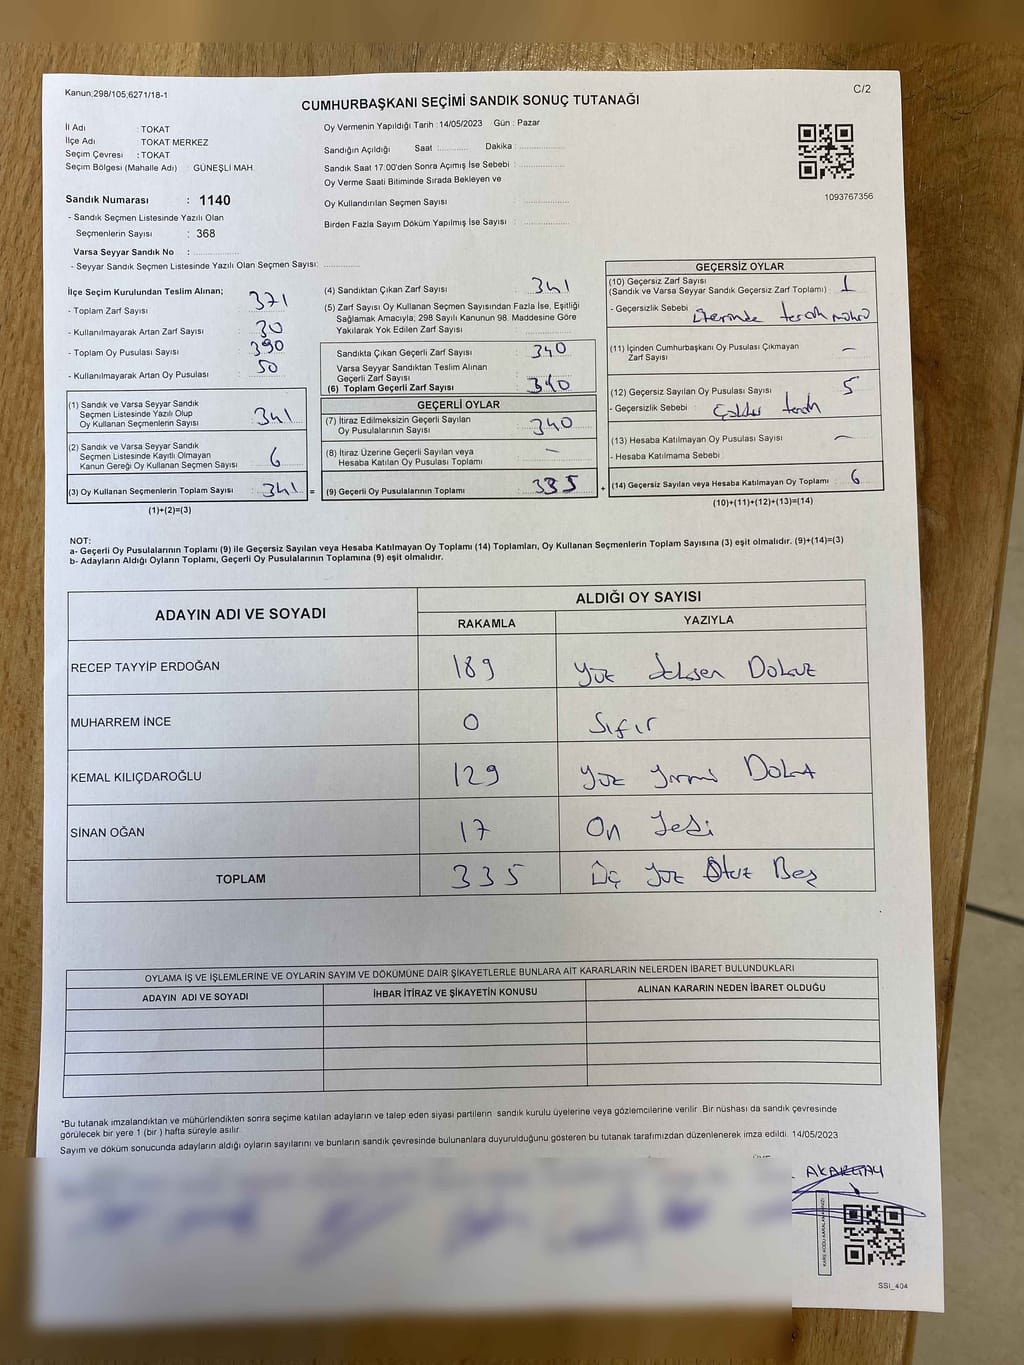 Kanun;298/105;6271/18-1
C/2
CUMHURBAŞKANI SEÇİMİ SANDIK SONUÇ TUTANAĞI
İl Adı : TOKAT
İlçe Adı TOKAT MERKEZ
Seçim Çevresi : TOKAT
Seçim Bölgesi (Mahalle Adı) : GÜNEŞLİ MAH.
Sandık Numarası : 1140
- Sandık Seçmen Listesinde Yazılı Olan
Seçmenlerin Sayısı : 368
Varsa Seyyar Sandık No :
- Seyyar Sandık Seçmen Listesinde Yazılı Olan Seçmen Sayısı:
Oy Vermenin Yapıldığı Tarih : 14/05/2023 Gün : Pazar
Sandığın Açıldığı Saat : Dakika :
Sandık Saat 17:00'den Sonra Açılmış İse Sebebi :
Oy Verme Saati Bitiminde Sırada Bekleyen ve
Oy Kullandırılan Seçmen Sayısı :
Birden Fazla Sayım Döküm Yapılmış İse Sayısı :
1093767356
İlçe Seçim Kurulundan Teslim Alınan;
- Toplam Zarf Sayısı : 371
- Kullanılmayarak Artan Zarf Sayısı : 30
- Toplam Oy Pusulası Sayısı : 390
- Kullanılmayarak Artan Oy Pusulası : 50
(1) Sandık ve Varsa Seyyar Sandık
Seçmen Listesinde Yazılı Olup
Oy Kullanan Seçmenlerin Sayısı : 341
(2) Sandık ve Varsa Seyyar Sandık
Seçmen Listesinde Kayıtlı Olmayan
Kanun Gereği Oy Kullanan Seçmen Sayısı : 6
(3) Oy Kullanan Seçmenlerin Toplam Sayısı : 341 =
(1)+(2)=(3)
(4) Sandıktan Çıkan Zarf Sayısı : 341
(5) Zarf Sayısı Oy Kullanan Seçmen Sayısından Fazla İse, Eşitliği
Sağlamak Amacıyla; 298 Sayılı Kanunun 98. Maddesine Göre
Yakılarak Yok Edilen Zarf Sayısı :
Sandıkta Çıkan Geçerli Zarf Sayısı : 340
Varsa Seyyar Sandıktan Teslim Alınan
Geçerli Zarf Sayısı :
(6) Toplam Geçerli Zarf Sayısı : 340
GEÇERLİ OYLAR
(7) İtiraz Edilmeksizin Geçerli Sayılan
Oy Pusulalarının Sayısı : 340
(8) İtiraz Üzerine Geçerli Sayılan veya
Hesaba Katılan Oy Pusulası Toplamı : -
(9) Geçerli Oy Pusulalarının Toplamı : 335 +
GEÇERSİZ OYLAR
(10) Geçersiz Zarf Sayısı
(Sandık ve Varsa Seyyar Sandık Geçersiz Zarf Toplamı) : 1
- Geçersizlik Sebebi : Üzerinde tercih mührü
(11) İçinden Cumhurbaşkanı Oy Pusulası Çıkmayan
Zarf Sayısı : -
(12) Geçersiz Sayılan Oy Pusulası Sayısı : 5
- Geçersizlik Sebebi : tercih
(13) Hesaba Katılmayan Oy Pusulası Sayısı : -
- Hesaba Katılmama Sebebi :
(14) Geçersiz Sayılan veya Hesaba Katılmayan Oy Toplamı : 6
(10)+(11)+(12)+(13)=(14)
NOT:
a- Geçerli Oy Pusulalarının Toplamı (9) ile Geçersiz Sayılan veya Hesaba Katılmayan Oy Toplamı (14) Toplamları, Oy Kullanan Seçmenlerin Toplam Sayısına (3) eşit olmalıdır. (9)+(14)=(3)
b- Adayların Aldığı Oyların Toplamı, Geçerli Oy Pusulalarının Toplamına (9) eşit olmalıdır.
ADAYIN ADI VE SOYADI
ALDIĞI OY SAYISI
RAKAMLA YAZIYLA
RECEP TAYYİP ERDOĞAN 189 Yüz Seksen Dokuz
MUHARREM İNCE 0 Sıfır
KEMAL KILIÇDAROĞLU 129 Yüz Yirmi Dokuz
SİNAN OĞAN 17 On Yedi
TOPLAM 335 Üç Yüz Otuz Beş
OYLAMA İŞ VE İŞLEMLERİNE VE OYLARIN SAYIM VE DÖKÜMÜNE DAİR ŞİKAYETLERLE BUNLARA AİT KARARLARIN NELERDEN İBARET BULUNDUKLARI
ADAYIN ADI VE SOYADI İHBAR İTİRAZ VE ŞİKAYETİN KONUSU ALINAN KARARIN NEDEN İBARET OLDUĞU
*Bu tutanak imzalandıktan ve mühürlendikten sonra seçime katılan adayların ve talep eden siyasi partilerin sandık kurulu üyelerine veya gözlemcilerine verilir. Bir nüshası da sandık çevresinde
görülecek bir yere 1 (bir ) hafta süreyle asılır.
Sayım ve döküm sonucunda adayların aldığı oyların sayılarını ve bunların sandık çevresinde bulunanlara duyurulduğunu gösteren bu tutanak tarafımızdan düzenlenerek imza edildi. 14/05/2023
SSI_404